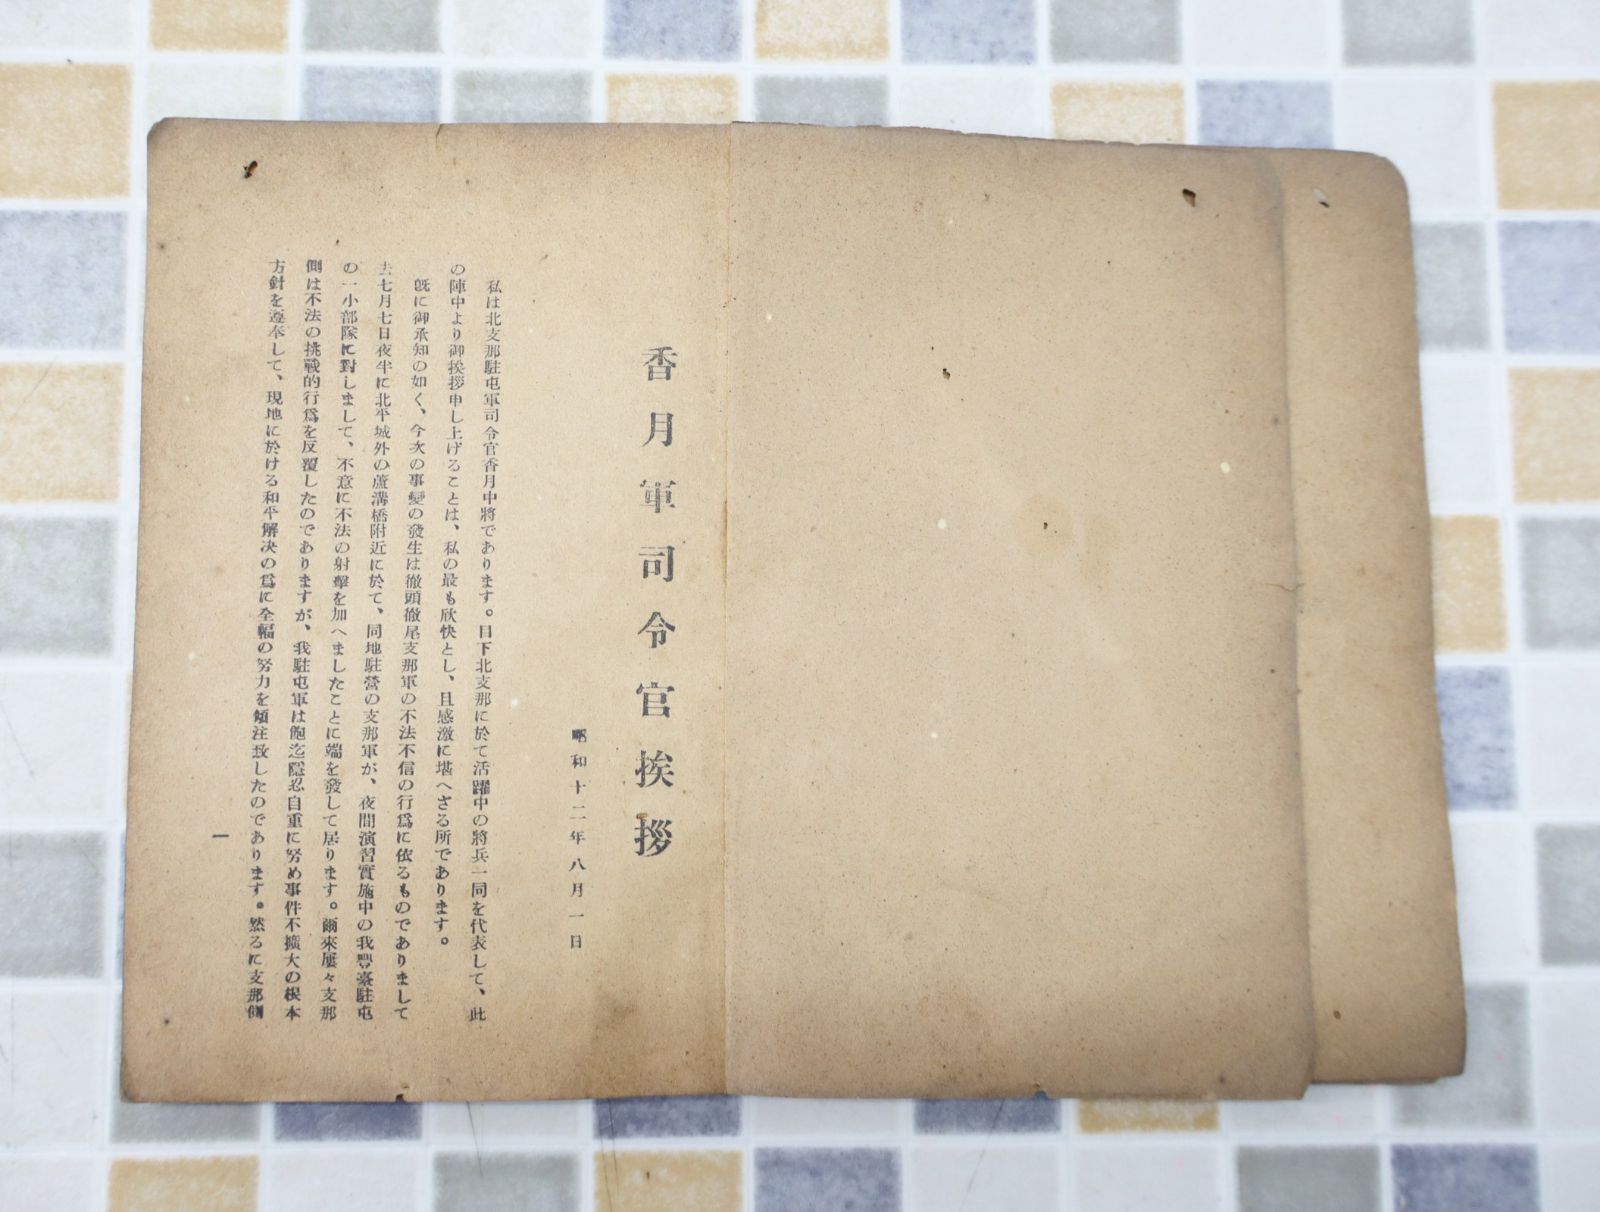 香月軍司令官挨拶
昭和十二年八月一日
私は北支那駐屯軍司令官香月中將であります。目下北支那に於て活躍中の將兵一同を代表して、此
の陣中より御挨拶申し上げることは、私の最も欣快とし、且感激に堪へざる所であります。
既に御承知の如く、今次の事變の發生は徹頭徹尾支那軍の不法不信の行爲に依るものでありまして
去七月七日夜半に北平城外の蘆溝橋附近に於て、同地駐營の支那軍が、夜間演習實施中の我豐臺駐屯
の一小部隊に對しまして、不意に不法の射擊を加へましたことに端を發して居ります。爾來屢々支那
側は不法の挑戰的行爲を反覆したのでありますが、我駐屯軍は飽迄隱忍自重に努め事件不擴大の根本
方針を遵奉して、現地に於ける和平解決の爲に全幅の努力を傾注致したのであります。然るに支那側
一